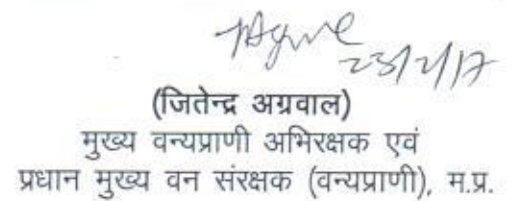 23/2/17
(जितेन्द्र अग्रवाल)
मुख्य वन्यप्राणी अभिरक्षक एवं
प्रधान मुख्य वन संरक्षक (वन्यप्राणी), म.प्र.